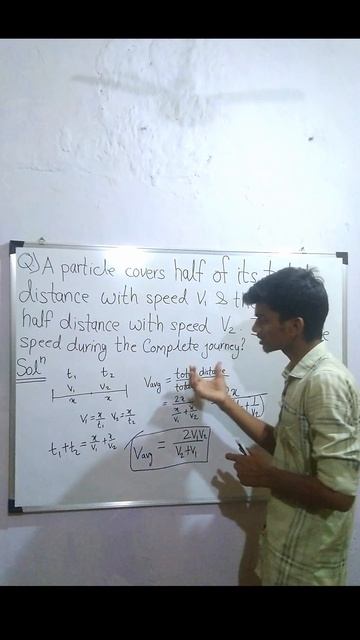 Q) A particle covers half of its
distance with speed V₁ & the
half distance with speed V₂.
speed during the Complete journey?
Solⁿ
t₁ t₂
V₁ V₂
x x
V₁ = x/t₁ V₂ = x/t₂
t₁+t₂ = x/V₁ + x/V₂
Vavg = total distance/
= 2x/(x/V₁ + x/V₂)
Vavg = 2V₁V₂/(V₂+V₁)